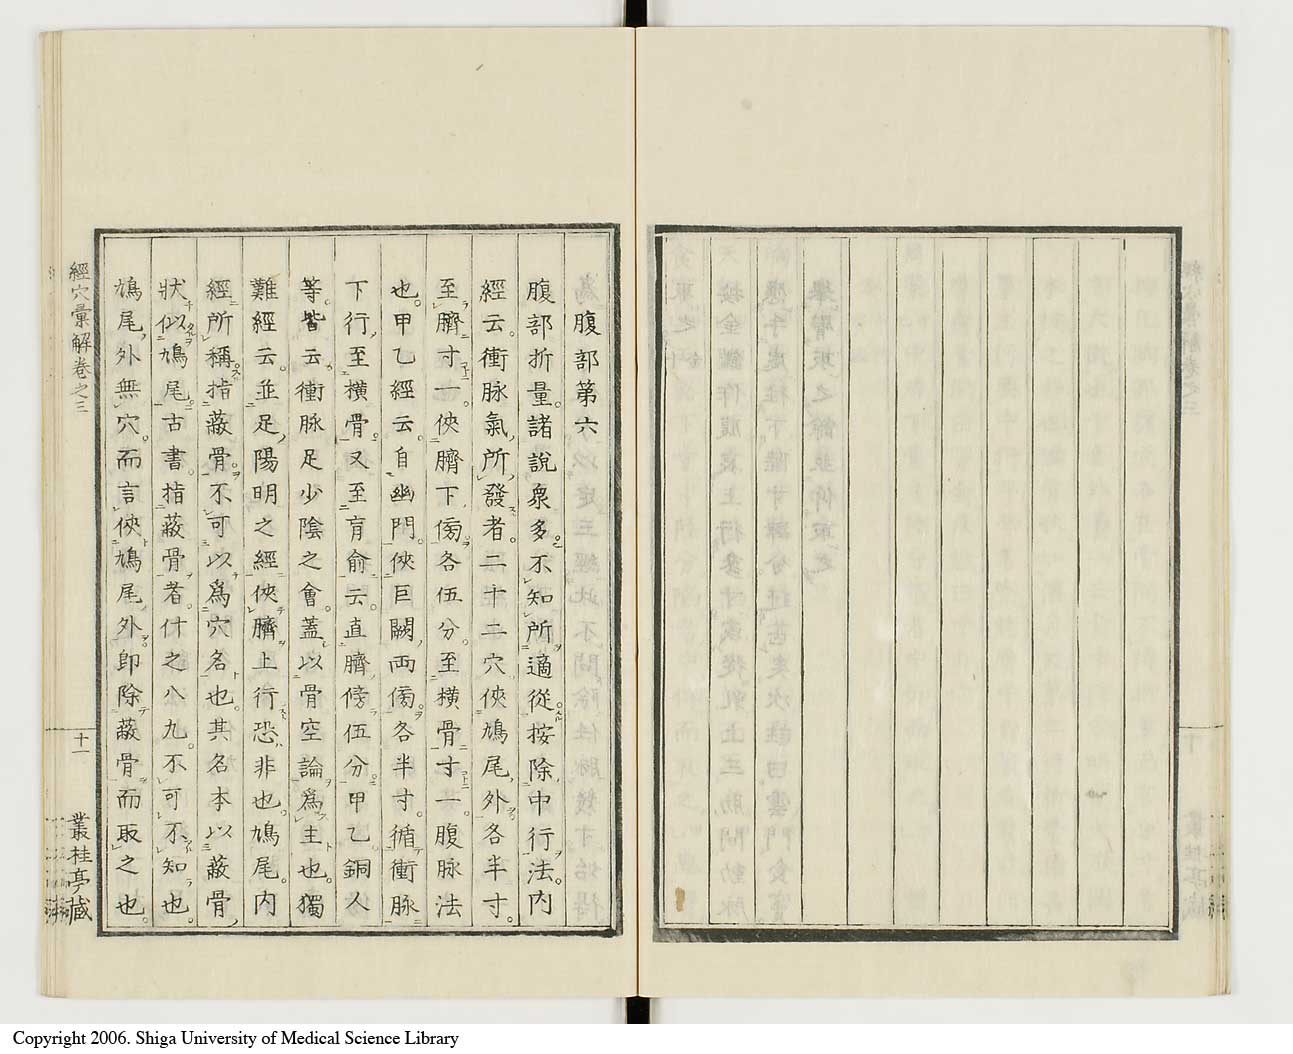 腹部第六
腹部折量諸說衆多不知所適從按除中行法內
經云衝脉氣所發者二十二穴俠鳩尾外各半寸
至臍寸一俠臍下傍各伍分至橫骨寸一腹脉法
也甲乙經云自幽門俠巨闕兩傍各半寸循衝脉
下行至橫骨又至肓俞云直臍傍伍分甲乙銅人
等皆云衝脉足少陰之會蓋以骨空論爲主也獨
難經云並足陽明之經俠臍上行恐非也鳩尾內
經所稱指蔽骨不可以爲穴名也其名本以蔽骨
狀似鳩尾古書指蔽骨者什之八九不可不知也
鳩尾外無穴而言俠鳩尾外卽除蔽骨而取之也
經穴彙解卷之三
十一
叢桂亭藏
Copyright 2006. Shiga University of Medical Science Library